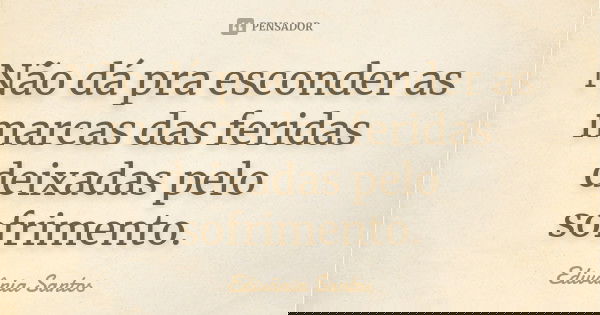 PENSADOR
Não dá pra esconder as
marcas das feridas
deixadas pelo
sofrimento.
Edivânia Santós